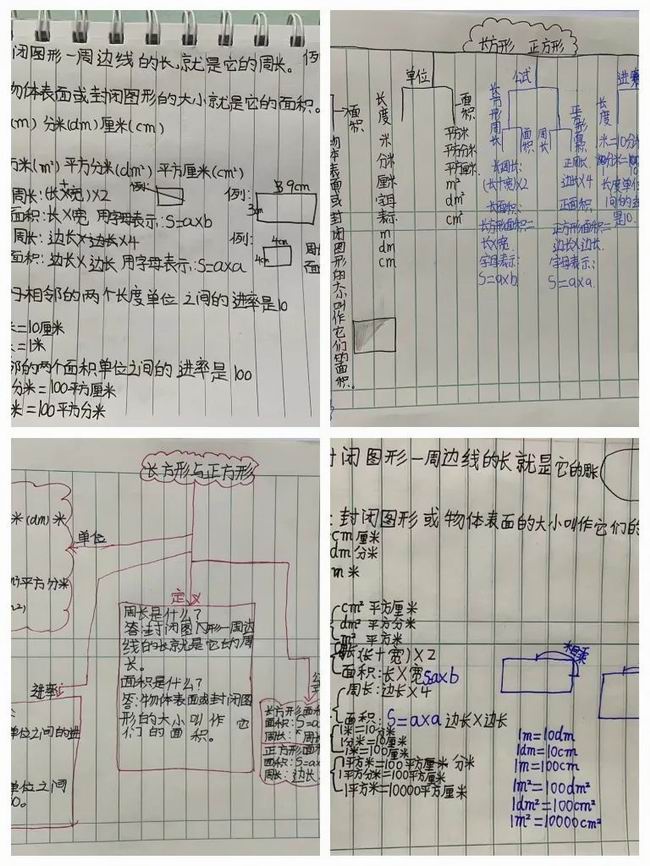 闭图形一周边线的长,就是它的周长。例
物体表面或封闭图形的大小就是它的面积。
(m) 分米(dm)厘米(cm)
方米(m²) 平方分米(dm²) 平方厘米(cm²)
周长:(长+宽)×2
例:
例:
39cm
3m
面积:长×宽 用字母表示:S=a×b
周长:边长×4
例:
4cm
4cm
周
面积:边长×边长 用字母表示:S=a×a
面
相邻的两个长度单位之间的进率是10
=10厘米
=1米
邻的两个面积单位之间的进率是100
分米=100平方厘米
米=100平方分米
长方形 正方形
单位
公试
进率
面积
长度
面积
长方形
周长
面积
周长
正方形
面积
长度
物体表面或封闭图形的大小叫作它们的面积。
米
分米
厘米
字母
表示
m
dm
cm
平方米
平方分米
平方厘米
m²
dm²
cm²
长周长:
(长+宽)×2
长面积:
长方形面积=
长×宽
字母表示:
S=a×b
正周长
边长×4
正面积
正方形面积=
边长×边长
字母表示:
S=a×a
米=10分
长度单位
间的进
是10.
长方形与正方形
米(dm)米
单位
平方分米
定义
周长是什么?
答:封闭图形一周边
线的长就是它的周
长。
面积是什么?
答:物体表面或封闭图
形的大小叫作它
们的面积。
进率
单位之间的进
单位之间
0。
长方形面积
面积:S=a
周长:
正方形面积
面积:S=a
周长:边长
封闭图形一周边线的长就是它的周长
:封闭图形或物体表面的大小叫作它们的
cm厘米
dm分米
m米
cm²平方厘米
dm²平方分米
m²平方米
(长+宽)×2
面积:长×宽 S=a×b
周长:边长×4
面积:S=a×a 边长×边长
1米=10分米
1分米=10厘米
1米=100厘米
1平方米=100平方厘米 分米
1平方分米=100平方厘米
1平方米=10000平方厘米
1m=10dm
1dm=10cm
1m=100cm
1m²=100dm²
1dm²=100cm²
1m²=10000cm²